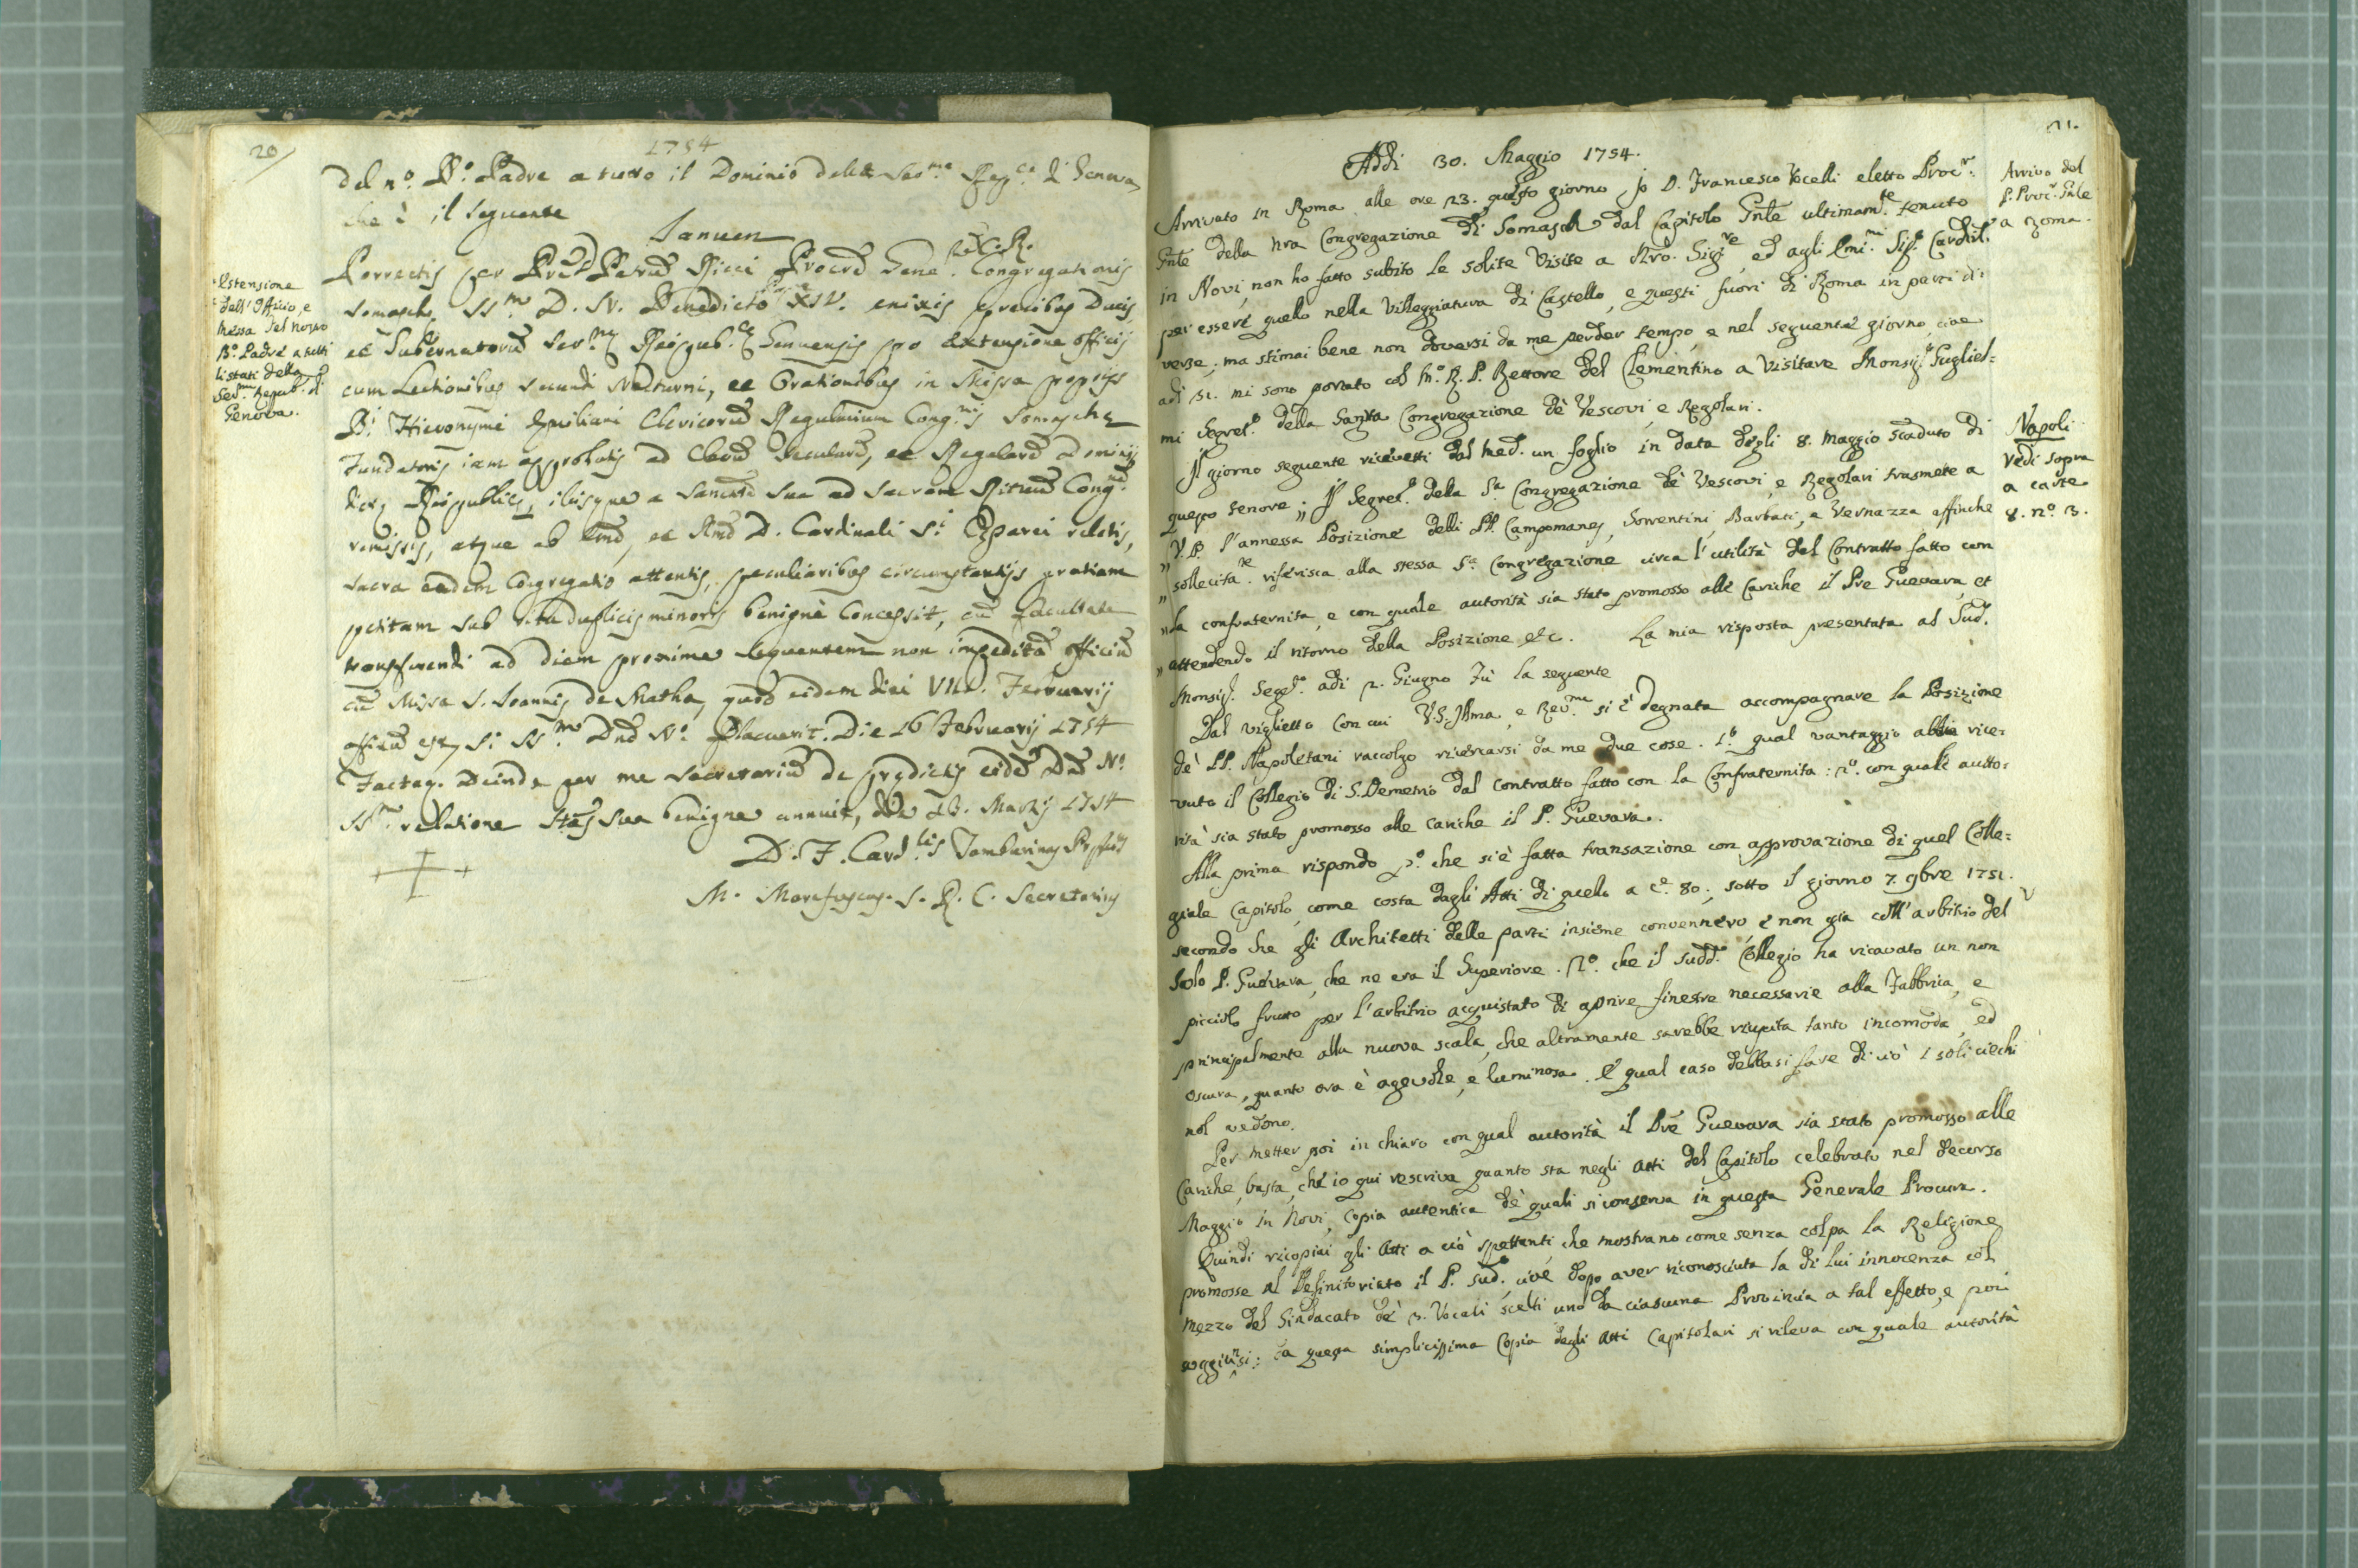 20
1754
del nº. Bº. Padre a tutto il Dominio della Ser.ma Rep.ca di Genova
che è il seguente
Januen
Estensione
dell'Officio, e
Messa del nostro
Bº. Padre a tutti
li stati della
Ser.ma Repub.ca di
Genova.
Porrectis per Petrum Ricci Procrem Gene. Congregationis C. R.
Somaschę SS.mo D. N. Benedicto XIV. enixis precibus Ducis
et Gubernatorū Ser.mę Reipub.cę Genuensis pro extensione officij
cum Lectionibus secundi Nocturni, et Orationibus in Missa proprijs
B.i Hieronymi Æmiliani Clericorū Regularium Cong.nis Somaschę
Fundatoris iam approbatis ad Clerū Secularē, et Regularē Dominij
dictę Reipublicę, ilisque a Sanctitē sua ad Sacram Rituū Cong.nē
remissis, atque ab Emō, et Rmō D. Cardinali S.i relatis,
Sacra eadem Congregatio attentis, peculiaribus circumstantijs gratiam
petitam sub ritu duplicis minoris benignè concessit, cū facultate
transferendi ad diem proxime sequentem non impeditā officiū
cū Missa S. Joannis de Matha, quod eidem diei VIII. Februarij
affixū est, si SS.mo Dnō Nº. placuerit. Die 16 Februarij 1754
Factaq. deinde per me Secretariū de prędictis eidē Dnō Nº.
SS.mo relatione Stās sua benigne annuit, die 23. Martij 1754
D. F. Card.lis Tamburinus Pręfus
M. Marefuscus. S. R. C. Secretarius
21.
Addi 30. Maggio 1754.
Arrivo del
P. Proc.r Gnle
a Roma.
Arrivato in Roma alle ore 23. questo giorno, Jo D. Francesco Vocelli eletto Proc.r
Gnle della nra Congregazione di Somasca dal Capitolo Gnle ultimam.te tenuto
in Novi, non ho fatto subito le solite visite a Nro. Sig.re, ed agli Emi.mi Sig.i Cardin.li
per essere quello nella Villeggiatura di Castello, e questi fuori di Roma in parti di:
verse; ma stimai bene non doversi da me perder tempo, e nel seguente giorno, cioe
adi 31. mi sono portato col Mº. R. P. Rettore del Clementino a visitare Monsig.r Gugliel=
mi Segret.º della Santa Congregazione dè Vescovi, e Regolari.
Napoli
Vedi sopra
a carte
8. nº. 3.
Il giorno seguente ricevetti dal med. un foglio in data degli 8. maggio scaduto di
questo tenore „ Il Segret.º della S.a Congregazione dè Vescovi, e Regolari trasmette a
„ V.P. l'annessa Posizione delli PP. Campomanes, Sorrentini, Barbati, e Vernazza affinche
„ sollecita.te riferisca alla stessa S.a Congregazione circa l'utilità del Contratto fatto con
„ la confraternita, e con quale autorità sia stato promosso alle Cariche il Pre Guevara, et
„ attendendo il ritorno della Posizione etc. La mia risposta presentata al Sud.º
Monsig.r Segret.º adi 2. Giugno fù la seguente
Dal viglietto con cui V.S. Illma, e Rev.ma si è degnata accompagnare la Posizione
dè PP. Napoletani raccolgo ricercarsi da me due cose. 1.º qual vantaggio abbia rice:
vuto il Collegio di S. Demetrio dal contratto fatto con la Confraternita: 2º. con quale auto:
rità sia stato promosso alle cariche il P. Guevara.
Alla prima rispondo pº. che si è fatta transazione con approvazione di quel Colle=
giale Capitolo, come costa dagli Atti di quello a cº. 80, sotto il giorno 7. 9bre 1751.
secondo che gli Architetti delle parti insieme convennero, e non gia coll'arbitrio del
solo P. Guevara, che ne era il Superiore. 2º. che il sudd.º Collegio ha ricavato un non
picciolo frutto per l'arbitrio acquistato di aprire finestre necessarie alla Fabbrica, e
principalmente alla nuova scala, che altramente sarebbe riuscita tanto incomoda, ed
oscura, quanto ora è agevole, e luminosa. E qual caso debbasi fare di ciò i soli ciechi
nol vedono.
Per metter poi in chiaro con qual autorità il Pre Guevara sia stato promosso alle
Cariche, basta, che io qui rescriva quanto sta negli Atti del Capitolo celebrato nel decorso
Maggio in Novi, copia autentica dè quali si conserva in questa Generale Procura.
Quindi ricopiai gli Atti a ciò spettanti, che mostrano come senza colpa la Religione
promosse al Definitoriato il P. sud.º, cioè dopo aver riconosciuta la di lui innocenza col
mezzo del Sindacato dè 3. Vocali scelti uno da ciascuna Provincia a tal effetto, e poi
soggiunsi: da questa simplicissima Copia degli Atti Capitolari si rileva con quale autorità